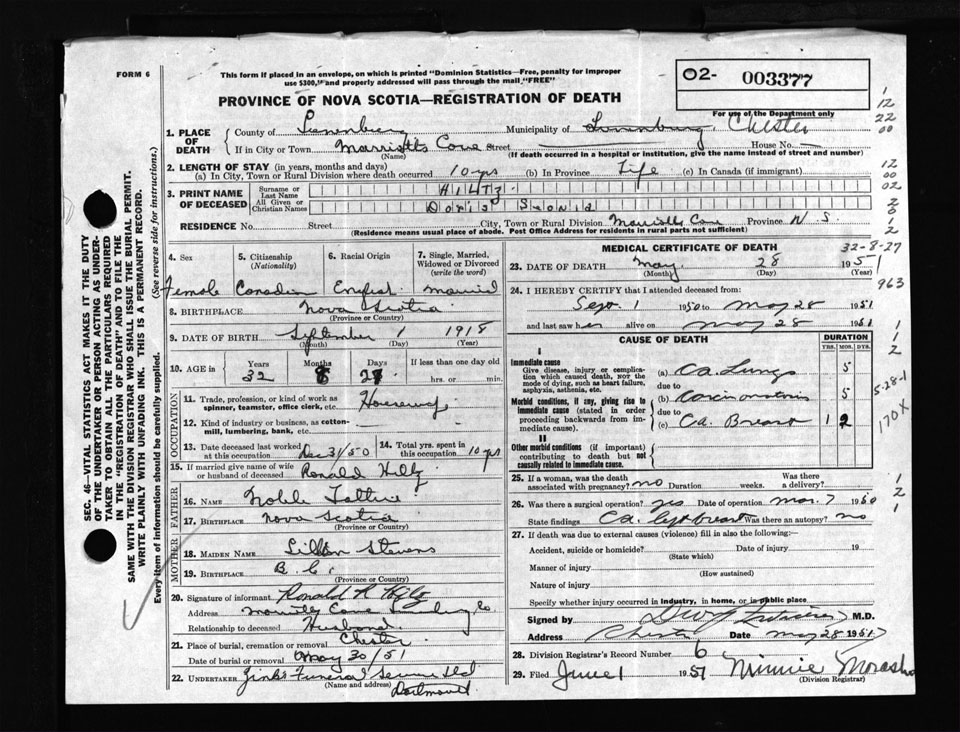 FORM 6
This form if placed in an envelope, on which is printed "Dominion Statistics—Free, penalty for improper
use $300," and properly addressed will pass through the mail "FREE"
O2- 003377
PROVINCE OF NOVA SCOTIA—REGISTRATION OF DEATH
For use of the Department only
1. PLACE OF DEATH County of Lunenburg Municipality of Lunenburg, Chester
If in City or Town Marriotts Cove Street House No. —
(Name) (If death occurred in a hospital or institution, give the name instead of street and number)
2. LENGTH OF STAY (in years, months and days)
(a) In City, Town or Rural Division where death occurred 10 yrs (b) In Province Life (c) In Canada (if immigrant)
3. PRINT NAME OF DECEASED Surname or Last Name HILTZ
All Given or Christian Names Doris
RESIDENCE No. Street City, Town or Rural Division Marriotts Cove Province N.S.
(Residence means usual place of abode. Post Office Address for residents in rural parts not sufficient)
4. Sex 5. Citizenship (Nationality) 6. Racial Origin 7. Single, Married, Widowed or Divorced (write the word)
Female Canadian English married
8. BIRTHPLACE Nova Scotia
(Province or County)
9. DATE OF BIRTH September 1 1918
(Month) (Day) (Year)
10. AGE in Years Months Days If less than one day old
32 8 27 hrs. or min.
OCCUPATION
11. Trade, profession, or kind of work as spinner, teamster, office clerk, etc. Housewife
12. Kind of industry or business, as cotton-mill, lumbering, bank, etc.
13. Date deceased last worked at this occupation Dec 31/50 14. Total yrs. spent in this occupation 10 yrs
15. If married give name of wife or husband of deceased Ronald Hiltz
FATHER
16. NAME Noble
17. BIRTHPLACE Nova Scotia
(Province or County)
MOTHER
18. MAIDEN NAME Stevens
19. BIRTHPLACE B.C.
(Province or County)
20. Signature of informant Ronald R Hiltz
Address Co
Relationship to deceased Husband
21. Place of burial, cremation or removal Chester
Date of burial or removal May 30/51
22. UNDERTAKER Zinks Funeral Service Ltd
(Name and address) Dartmouth
MEDICAL CERTIFICATE OF DEATH
32-8-27
23. DATE OF DEATH May 28 1951
(Month) (Day) (Year)
24. I HEREBY CERTIFY that I attended deceased from:
963
Sept. 1 1950 to May 28 1951
and last saw her alive on May 28 1951
CAUSE OF DEATH DURATION
YRS. MOS. DYS.
I
Immediate cause
Give disease, injury or complication which caused death, not the mode of dying, such as heart failure, asphyxia, asthenia, etc.
(a) Ca. Lungs 5
due to
Morbid conditions, if any, giving rise to immediate cause (stated in order proceeding backwards from immediate cause).
(b) Carcinomatosis 5
due to
(c) Ca. Breast 1 2
5-28-1
170X
II
Other morbid conditions (if important) contributing to death but not causally related to immediate cause.
25. If a woman, was the death associated with pregnancy? no Duration weeks. Was there a delivery?
26. Was there a surgical operation? yes Date of operation Mar. 7 1950
State findings Ca. left breast Was there an autopsy? no
27. If death was due to external causes (violence) fill in also the following:
Accident, suicide or homicide? Date of injury 19
(State which)
Manner of injury
(How sustained)
Nature of injury
Specify whether injury occurred in industry, in home, or in public place
Signed by M.D.
Address Chester Date May 28 1951
28. Division Registrar's Record Number 6
29. Filed June 1 1951 Minnie
(Division Registrar)
SEC. 46—VITAL STATISTICS ACT MAKES IT THE DUTY
OF THE UNDERTAKER OR PERSON ACTING AS UNDER-
TAKER TO OBTAIN ALL THE PARTICULARS REQUIRED
IN THE "REGISTRATION OF DEATH" AND TO FILE THE
SAME WITH THE DIVISION REGISTRAR WHO SHALL ISSUE THE BURIAL PERMIT.
WRITE PLAINLY WITH UNFADING INK. THIS IS A PERMANENT RECORD.
Every item of information should be carefully supplied. (See reverse side for instructions.)
1
12
22
00
12
00
02
2
6
1
2
1
1
2
1
2
1